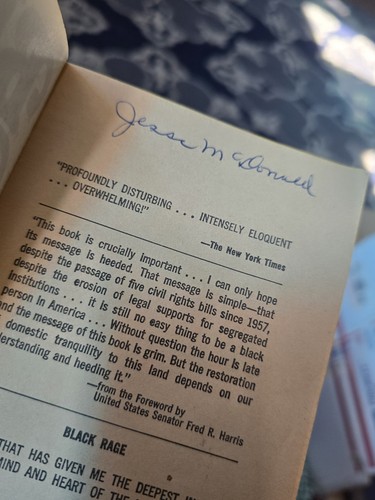 Jesse McDonald
"PROFOUNDLY DISTURBING . . . INTENSELY ELOQUENT
. . . OVERWHELMING!"
—The New York Times
"This book is crucially important . . . I can only hope
its message is heeded. That message is simple—that
despite the passage of five civil rights bills since 1957,
despite the erosion of legal supports for segregated
institutions . . . it is still no easy thing to be a black
person in America . . . Without question the hour is late
and the message of this book is grim. But the restoration
domestic tranquility to this land depends on our
erstanding and heeding it."
—from the Foreword by
United States Senator Fred R. Harris
BLACK RAGE
THAT HAS GIVEN ME THE DEEPEST
MIND AND HEART OF THE